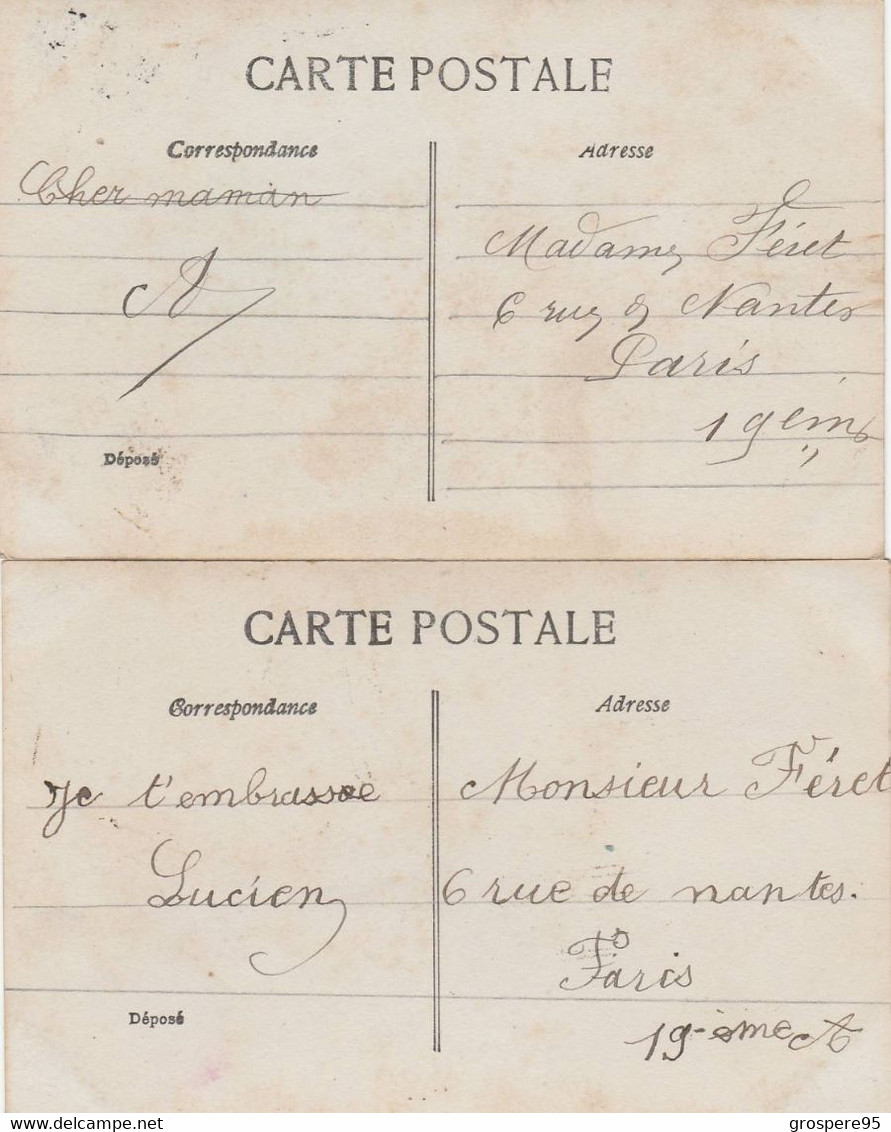 CARTE POSTALE
Correspondance
Adresse
Cher maman
A
Madame Féret
6 rue de Nantes
Paris
19 ém
Déposé
CARTE POSTALE
Correspondance
Adresse
Je t'embrasse
Lucien
Monsieur Féret
6 rue de nantes.
Paris
19-ème A
Déposé
grospere95